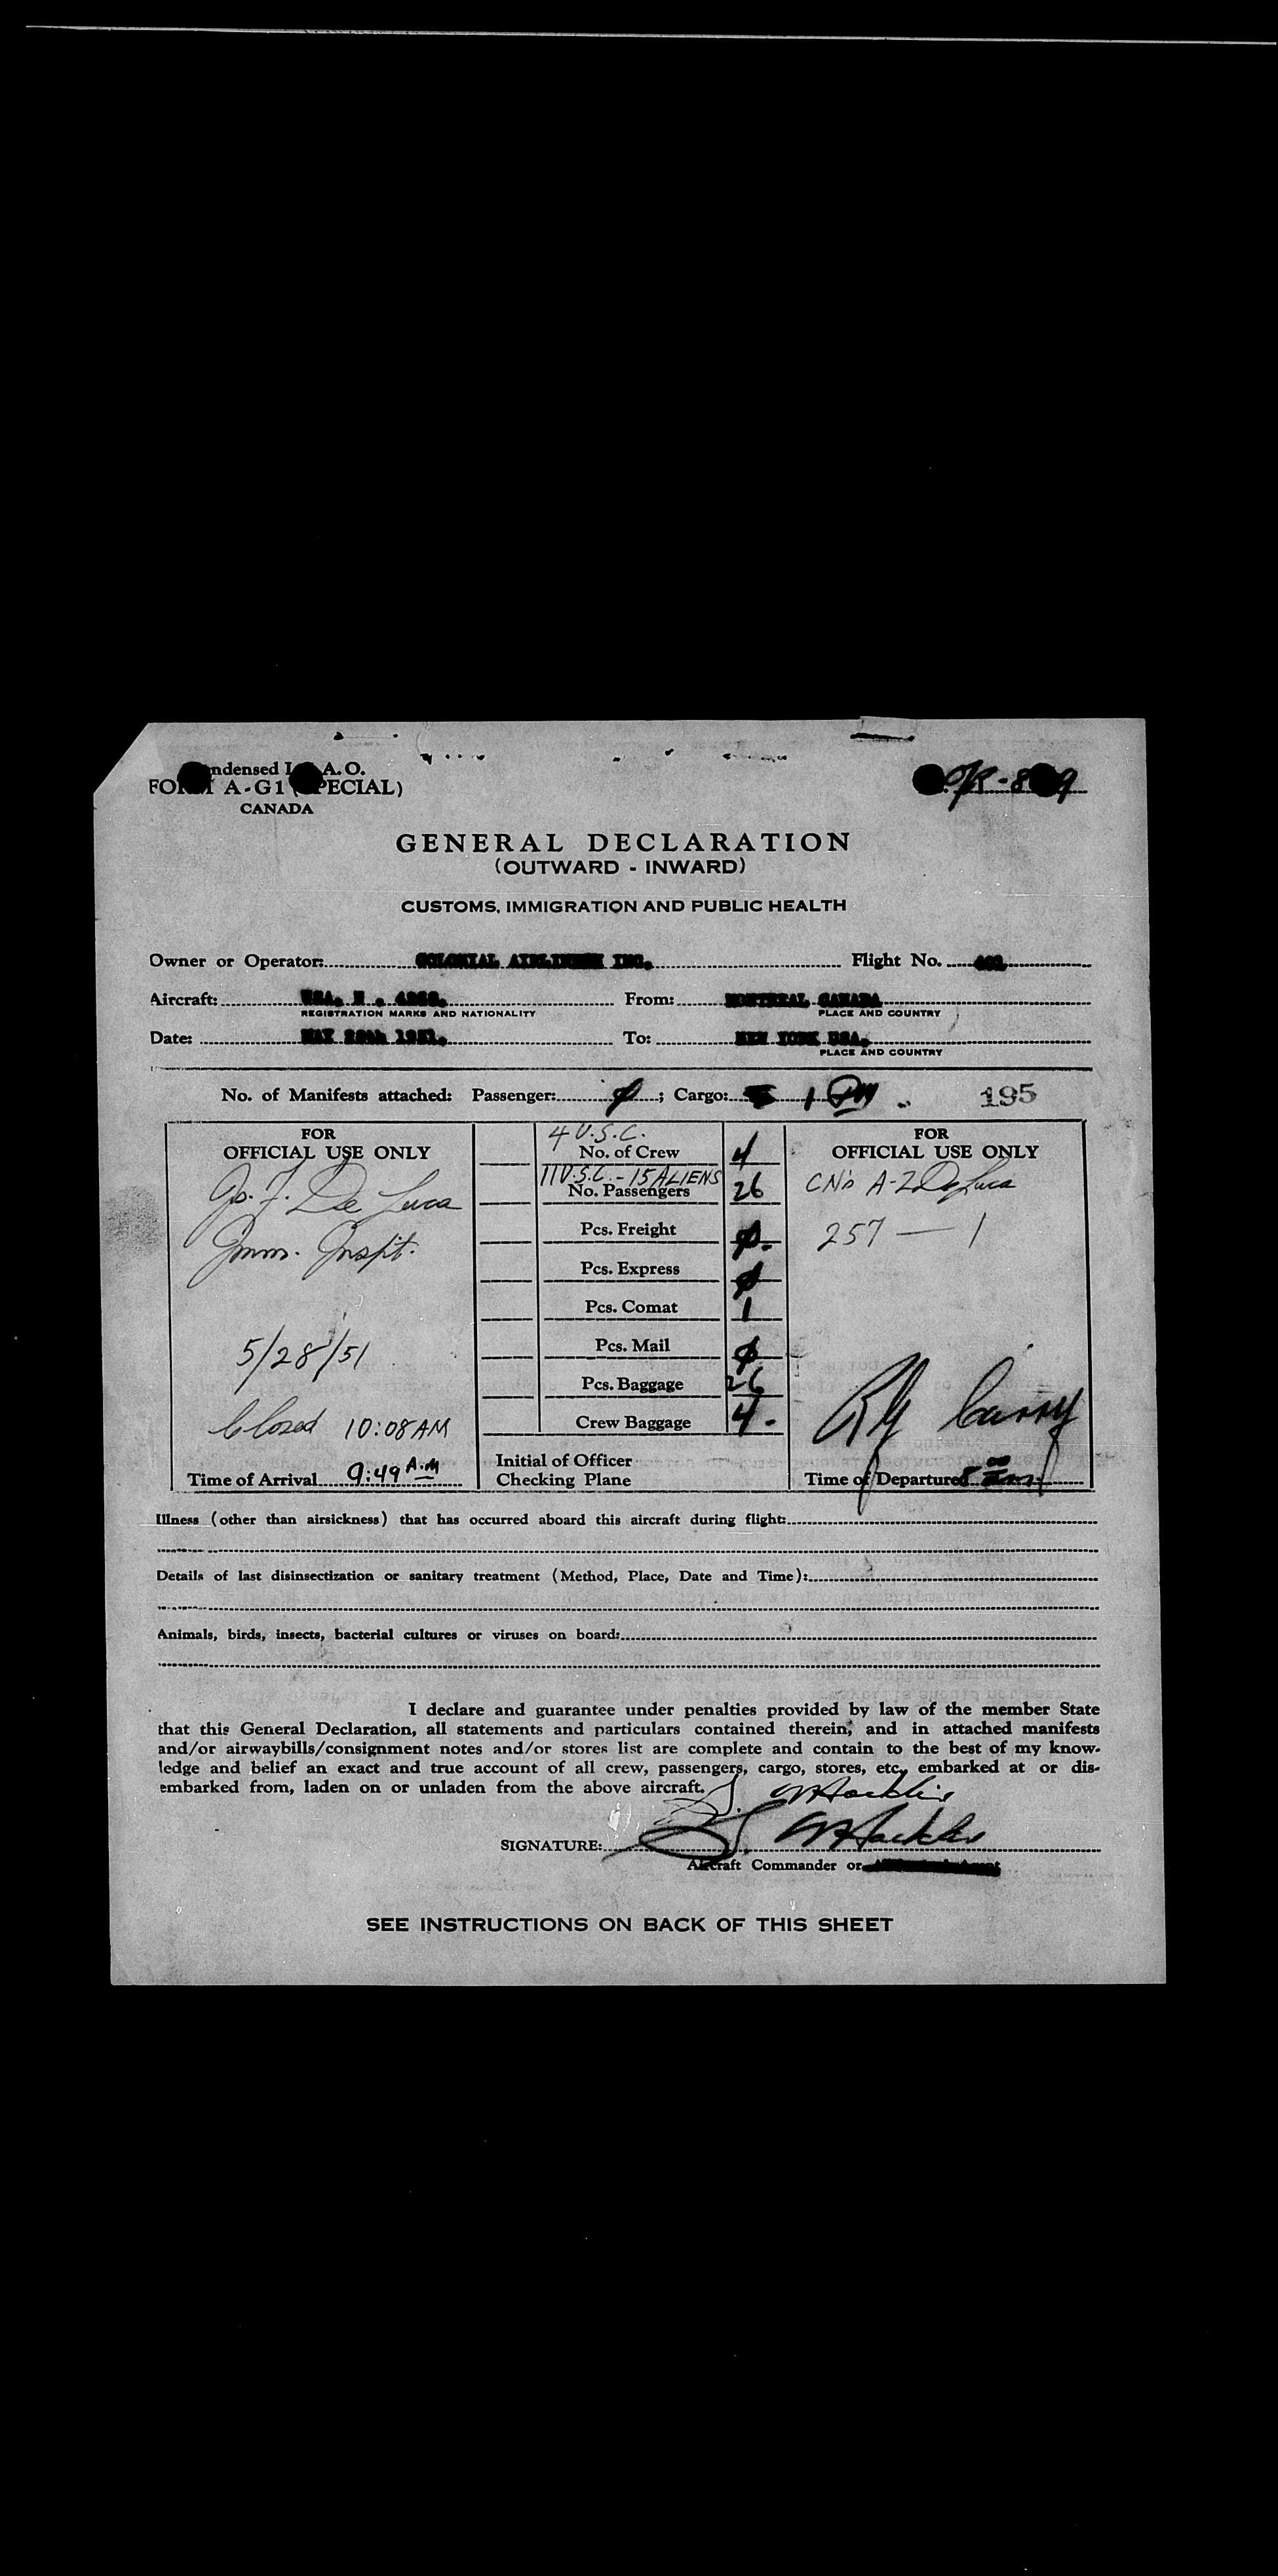 Condensed I.C.A.O.
FORM A-G1 (SPECIAL)
CANADA
GENERAL DECLARATION
(OUTWARD - INWARD)
CUSTOMS, IMMIGRATION AND PUBLIC HEALTH
Owner or Operator: COLONIAL AIRLINES INC. Flight No.
Aircraft: USA. N . From: MONTREAL CANADA
REGISTRATION MARKS AND NATIONALITY PLACE AND COUNTRY
Date: MAY 28th 1951. To: NEW YORK USA.
PLACE AND COUNTRY
No. of Manifests attached: Passenger: ; Cargo: 1 195
FOR
OFFICIAL USE ONLY
De Luca
Imm. Inspt.
5/28/51
Closed 10:08 AM
Time of Arrival 9:49 A.M
4 U.S.C.
No. of Crew 4
11 U.S.C. - 15 ALIENS
No. Passengers 26
Pcs. Freight ø.
Pcs. Express ø
Pcs. Comat 1
Pcs. Mail ø
Pcs. Baggage 26
Crew Baggage 4.
Initial of Officer
Checking Plane
FOR
OFFICIAL USE ONLY
CN's A-2 De Luca
257 — 1
Time of Departure
Illness (other than airsickness) that has occurred aboard this aircraft during flight:
Details of last disinsectization or sanitary treatment (Method, Place, Date and Time):
Animals, birds, insects, bacterial cultures or viruses on board:
I declare and guarantee under penalties provided by law of the member State
that this General Declaration, all statements and particulars contained therein, and in attached manifests
and/or airwaybills/consignment notes and/or stores list are complete and contain to the best of my know-
ledge and belief an exact and true account of all crew, passengers, cargo, stores, etc., embarked at or dis-
embarked from, laden on or unladen from the above aircraft.
SIGNATURE:
Aircraft Commander or
SEE INSTRUCTIONS ON BACK OF THIS SHEET